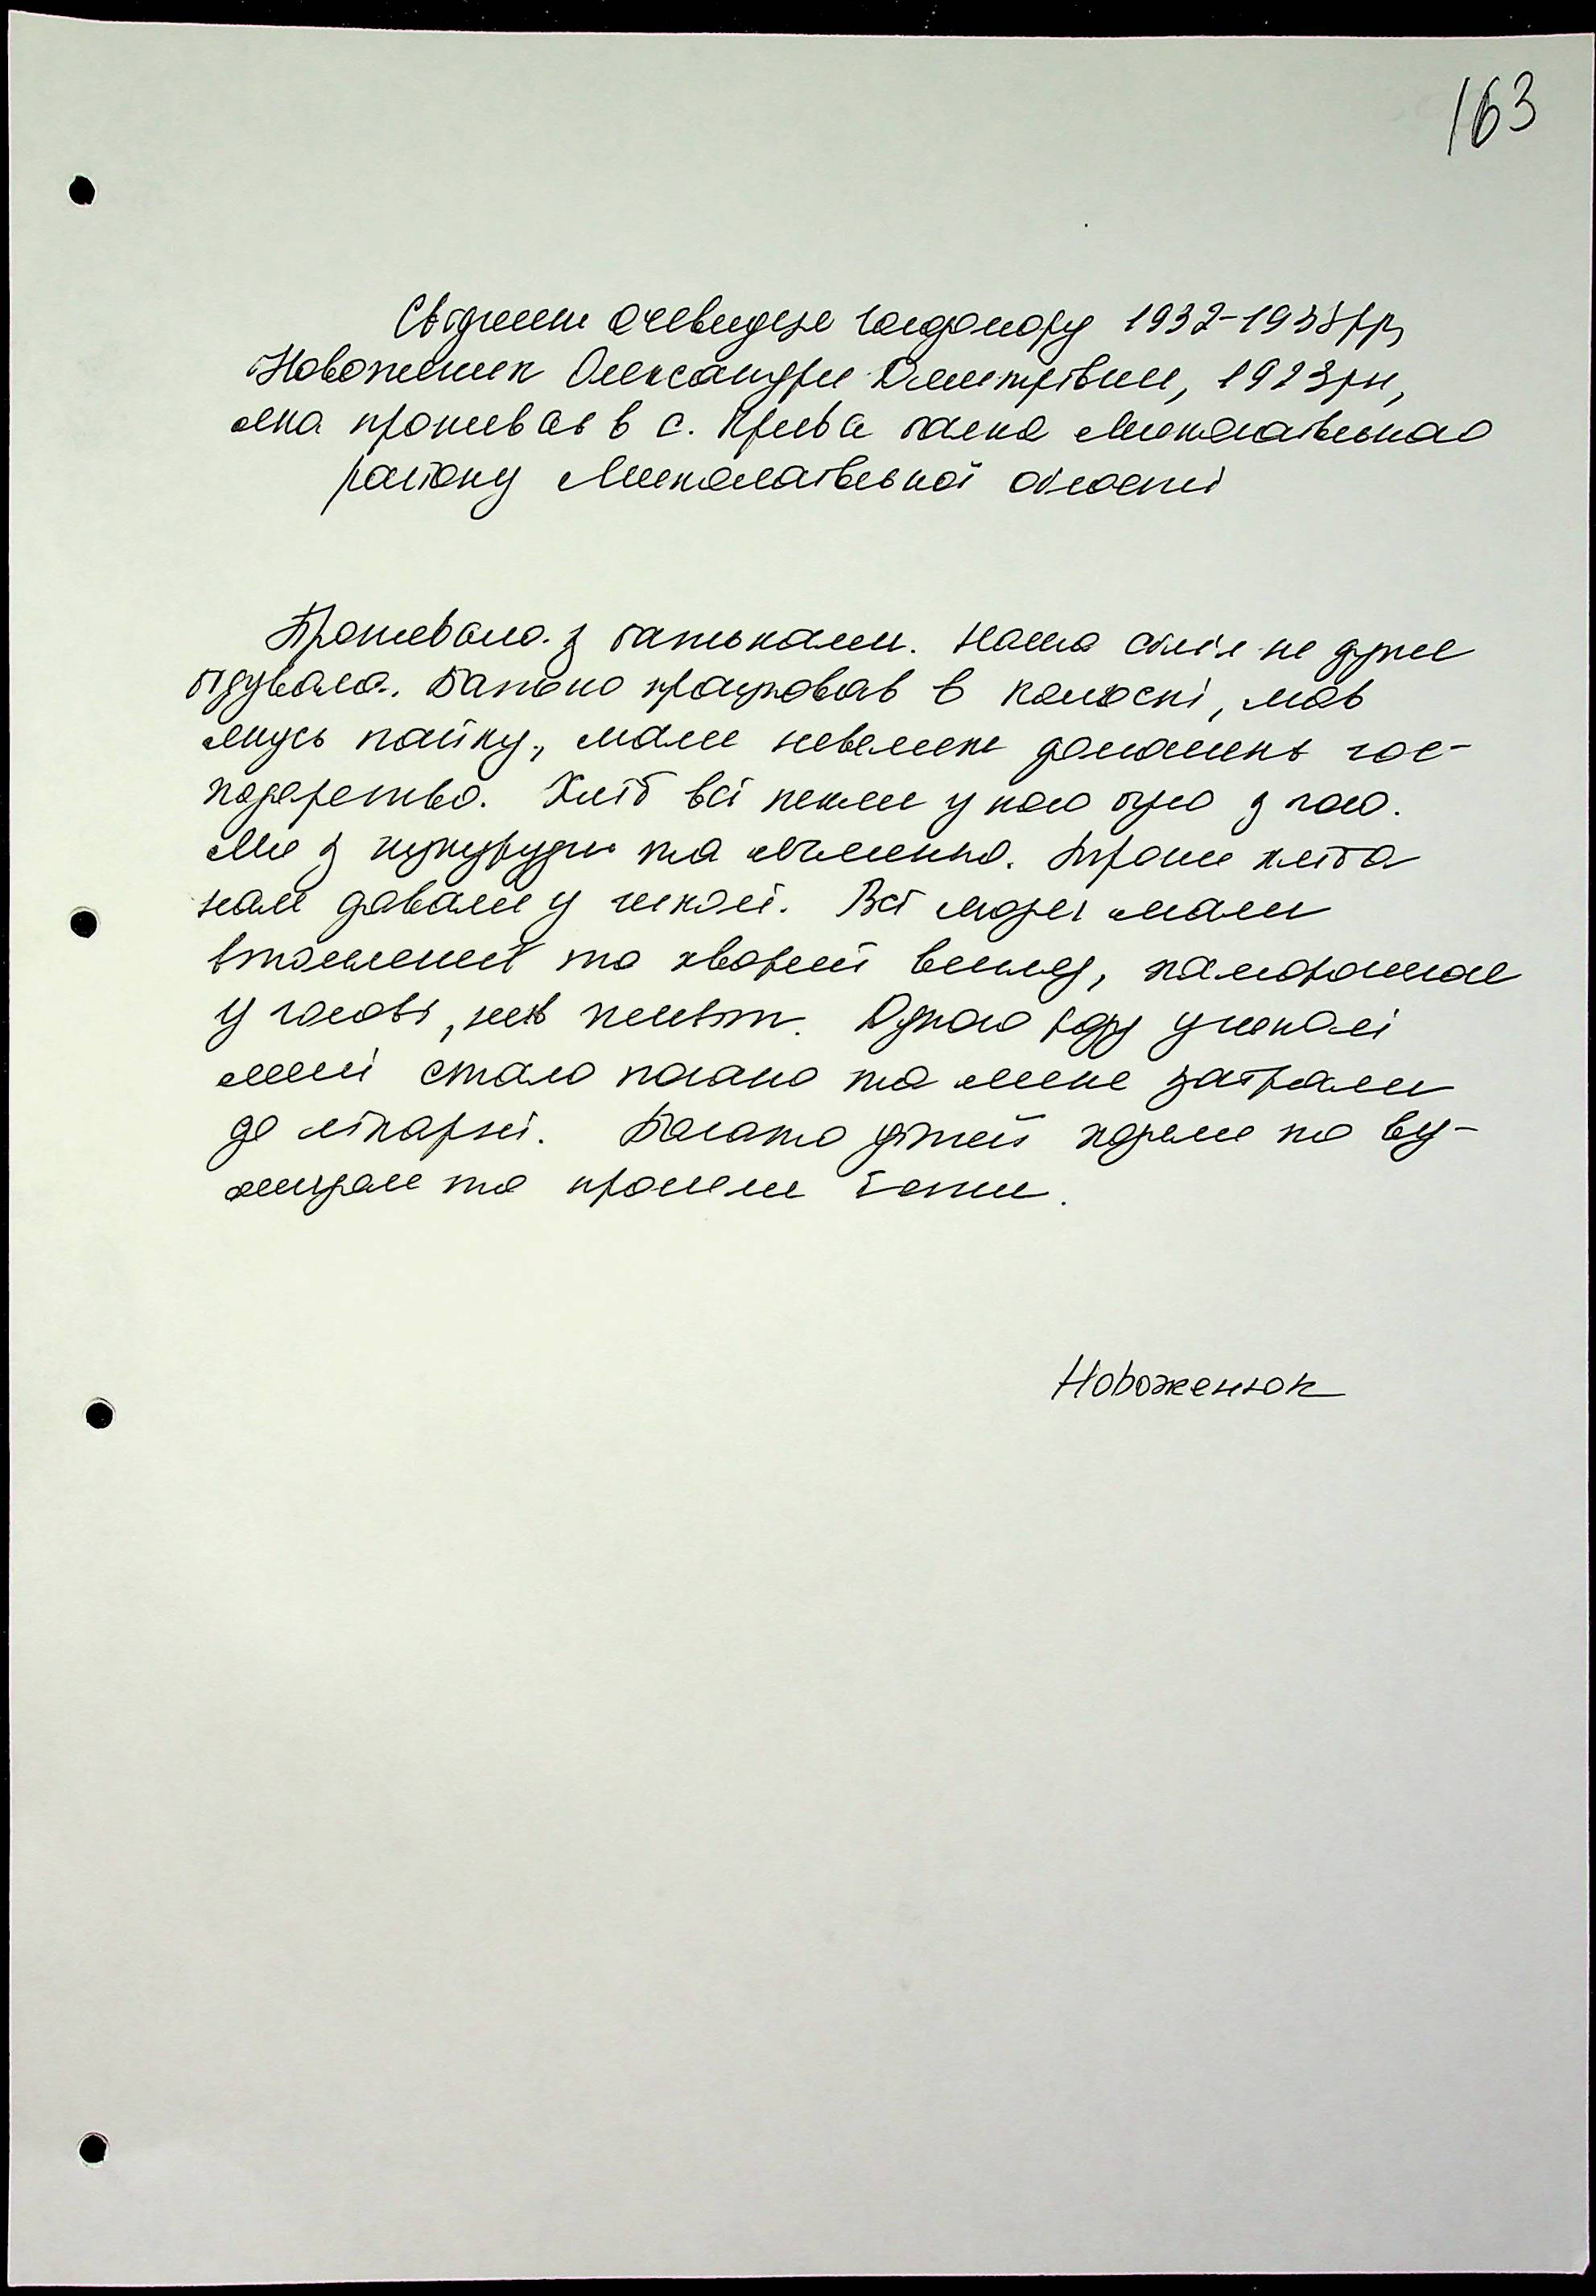 163
Свідчення очевидця голодомору 1932-1933рр,
Новоженюк Олександри Дмитрівни, 1923рн,
яка проживає в с. Крива балка Миколаївського
району Миколаївської області
Проживала з батьками. Наша сім'я не дуже
бідувала. Батько працював в колгоспі, мав
якусь пайку, мали невелике домашнє гос-
подарство. Хліб всі пекли у кого було з чого.
Ми з кукурудзи та ячменю. Трохи хліба
нам давали у школі. Всі люди мали
втомлений та хворий вигляд, паморочилось
у голові, живіт. Одного разу у школі
мені стало погано та мене забрали
до лікарні. Багато дітей ходили по ву-
лицям та просили їсти.
Новоженюк